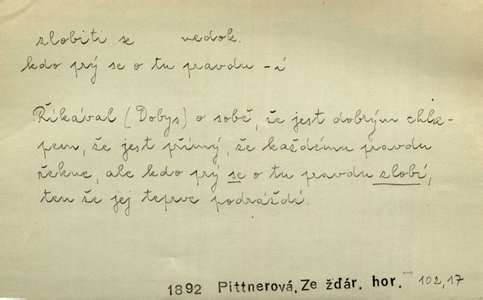 zlobiti se nedok.
kdo prý se o tu pravdu -í
Říkával (Dobys) o sobě, že jest dobrým chla-
pem, že jest přímý, že každému pravdu
řekne, ale kdo prý se o tu pravdu zlobí,
ten že jej teprve podráždí.
1892 Pittnerová, Ze žďár. hor. 102,17